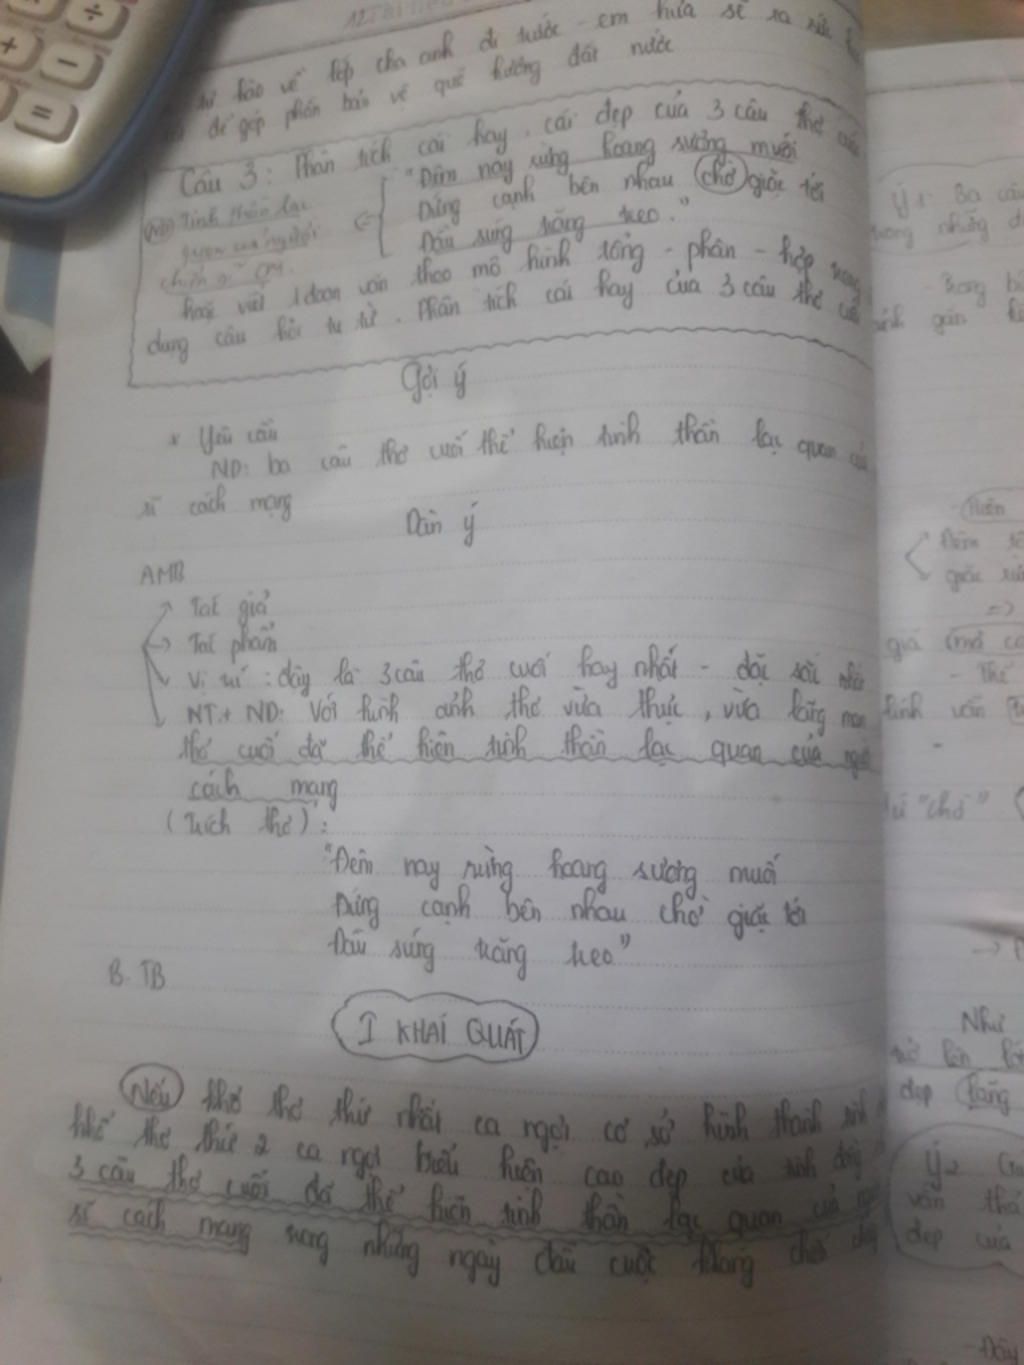 tự hào về lớp cha anh đi trước - em hứa sẽ ra sức
để góp phần bảo vệ quê hương đất nước
Câu 3: Phân tích cái hay, cái đẹp của 3 câu thơ cuối
"Đêm nay rừng hoang sương muối
Tinh thần lạc
Đứng cạnh bên nhau chờ giặc tới
quan của người
Đầu súng trăng treo."
chiến sĩ CM.
hoặc viết 1 đoạn văn theo mô hình tổng - phân - hợp trong
dung câu hỏi tu từ. Phân tích cái hay của 3 câu thơ cuối
Gợi ý
* Yêu cầu
ND: ba câu thơ cuối thể hiện tinh thần lạc quan của
sĩ cách mạng
Dàn ý
A MB
Tác giả
Tác phẩm
Vị trí: đây là 3 câu thơ cuối hay nhất - đặc sắc nhất
NT + ND: Với hình ảnh thơ vừa thực, vừa lãng mạn
thơ cuối đã thể hiện tinh thần lạc quan của người
cách mạng
(Trích thơ):
"Đêm nay rừng hoang sương muối
Đứng cạnh bên nhau chờ giặc tới
Đầu súng trăng treo"
B. TB
I KHÁI QUÁT
Nếu khổ thơ thứ nhất ca ngợi cơ sở hình thành tình
khổ thơ thứ 2 ca ngợi biểu hiện cao đẹp của tình đồng
3 câu thơ cuối đã thể hiện tinh thần lạc quan của người
sĩ cách mạng trong những ngày đầu cuộc kháng chiến
Ý1: Ba câu
trong những
- Trong
ảnh gắn
Hiện
Đêm
giặc
=>
giá
- Thế
tình
từ "chờ"
Như
trở lên
đẹp tầng
Ý2
văn
đẹp của
- Đây